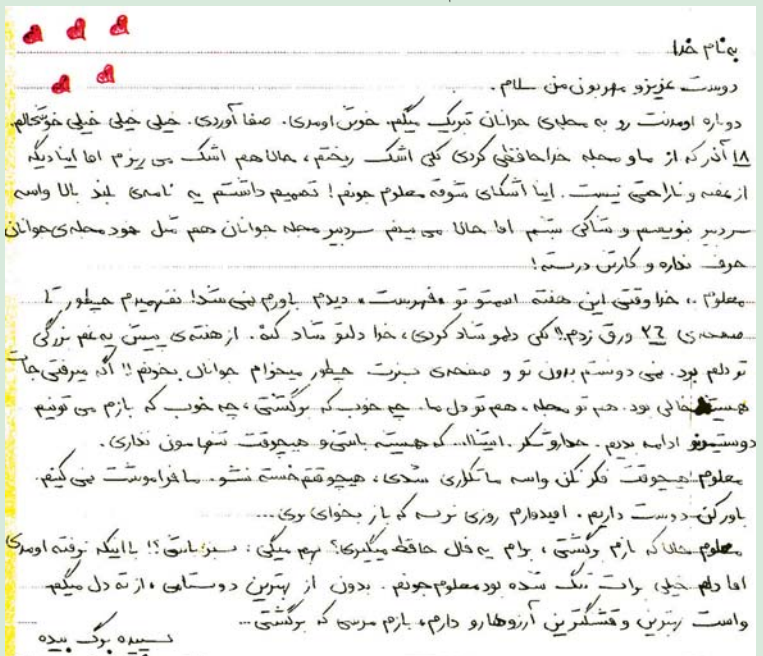 به نام خدا
دوست عزیز و مهربون من سلام.
دوباره اومدنت رو به مجله‌ی جوانان تبریک میگم. خوش اومدی. صفا آوردی. خیلی خیلی خیلی خوشحالم.
۱۸ آذر که از ما و مجله خداحافظی کردی کلی اشک ریختم، حالا هم اشک می ریزم اما اینا دیگه
از غصه و ناراحتی نیست. اینا اشکای شوقه معلوم جونم! تصمیم داشتم یه نامه‌ی بلند بالا واسه
سردبیر بنویسم و شاکی بشم اما حالا می بینم سردبیر مجله جوانان هم مثل خود مجله‌ی جوانان
حرف نداره و کارش درسته!
معلوم، خدا وقتی این هفته اسمتو تو «فهرست» دیدم باورم نمی شد! نفهمیدم چطور تا
صفحه‌ی ۲۶ ورق زدم!! کلی دلمو شاد کردی، خدا دلتو شاد کنه. از هفته‌ی پیش یه غم بزرگی
تو دلم بود. نمی دونستم بدون تو و صفحه‌ی سبزت چطور میخوام جوانان بخونم!! اگه میرفتی جات
همیشه خالی بود. هم تو مجله، هم تو دل ما. چه خوب که برگشتی، چه خوب که بازم می تونیم
دوستیمونو ادامه بدیم. خدارو شکر. انشاا... که همیشه باشی و هیچوقت تنهامون نذاری.
معلوم هیچوقت فکر نکن واسه ما تکراری شدی، هیچوقتم خسته نشو. ما فراموشت نمی کنیم.
باور کن دوست داریم. امیدوارم روزی نرسه که باز بخوای بری...
معلوم حالا که بازم برگشتی، برام یه فال حافظ میگیری؟ بهم میگی: سبز باشی؟! با اینکه نرفته اومدی
اما دلم خیلی برات تنگ شده بود معلوم جونم. بدون از بهترین دوستامی، از ته دل میگم.
واست بهترین و قشنگترین آرزوهارو دارم، بازم مرسی که برگشتی...
سپیده برگ بیده